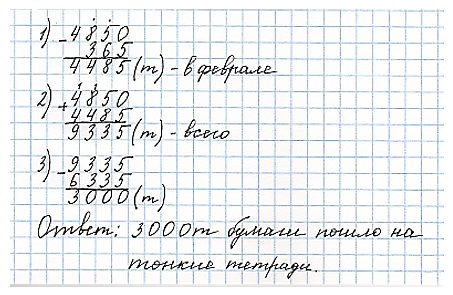 1) - 4850
365
4485 (т) - в феврале
2) + 4850
4485
9335 (т) - всего
3) - 9335
6335
3000 (т)
Ответ: 3000т бумаги пошло на
тонкие тетради.